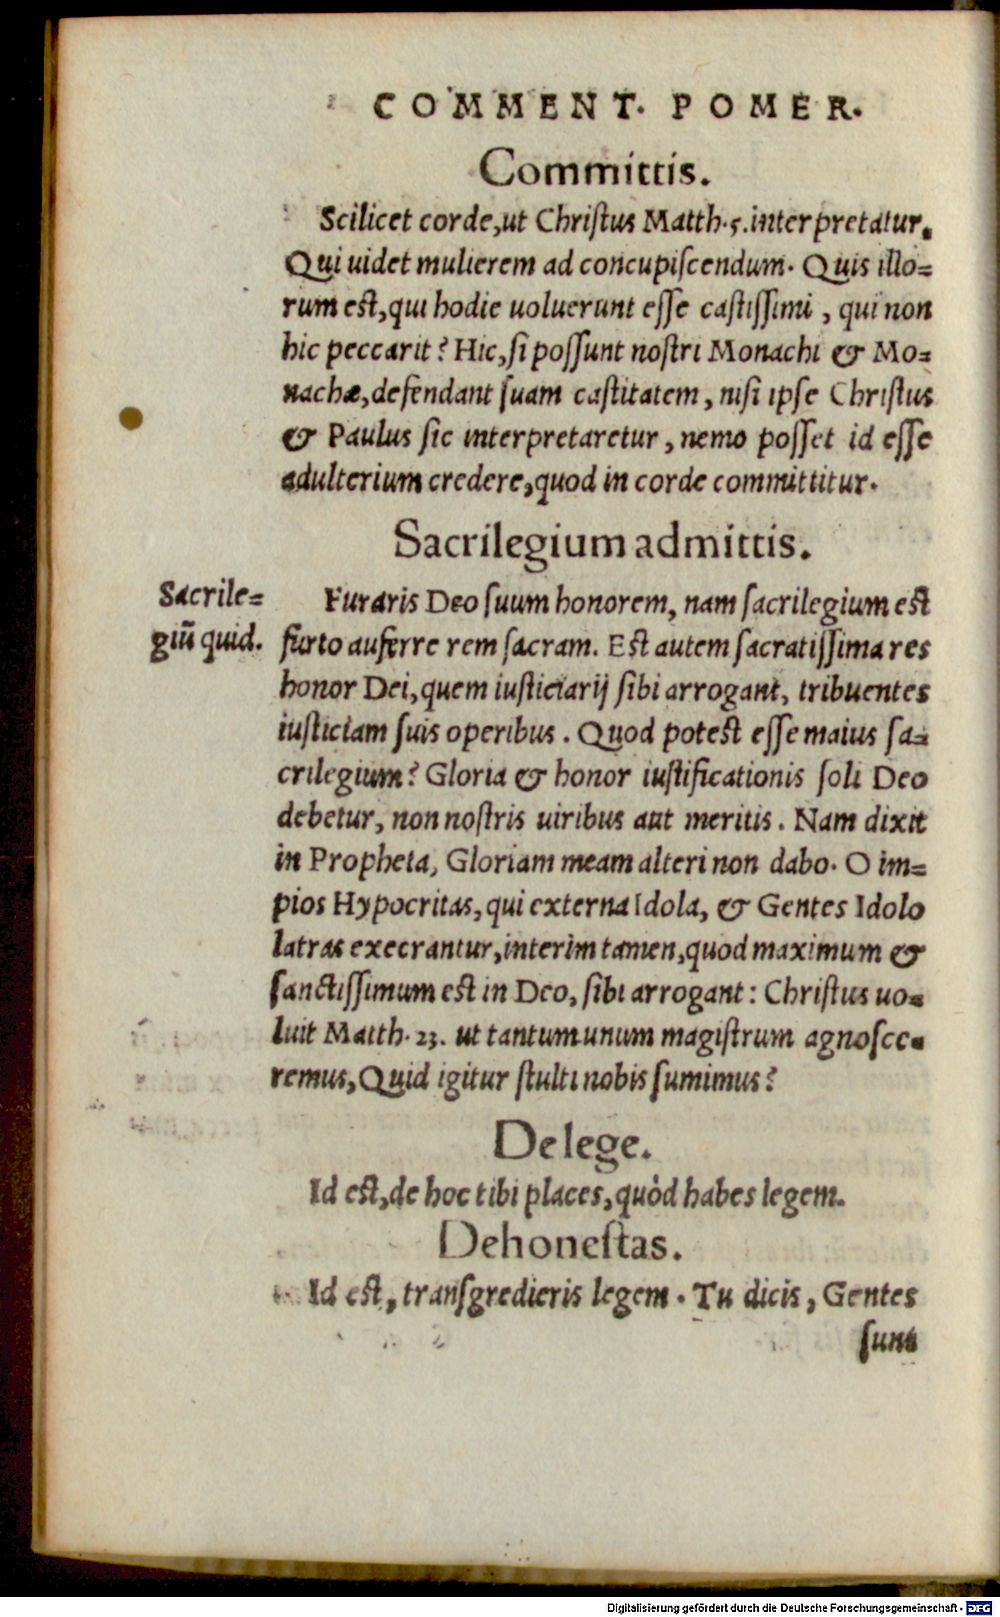 COMMENT. POMER.
Committis.
Scilicet corde,ut Chriſtus Matth.5.interpretatur.
Qui uidet mulierem ad concupiſcendum. Quis illo=
rum eſt,qui hodie uoluerunt eſſe caſtiſſimi , qui non
hic peccarit? Hic,ſi poſſunt noſtri Monachi & Mo=
nachæ,defendant ſuam caſtitatem, niſi ipſe Chriſtus
& Paulus ſic interpretaretur, nemo poſſet id eſſe
adulterium credere,quod in corde committitur.
Sacrilegium admittis.
Sacrile=
giū quid.
Furaris Deo ſuum honorem, nam ſacrilegium eſt
furto auferre rem ſacram. Eſt autem ſacratiſſima res
honor Dei,quem iuſticiarij ſibi arrogant, tribuentes
iuſticiam ſuis operibus. Quod poteſt eſſe maius ſa=
crilegium? Gloria & honor iuſtificationis ſoli Deo
debetur, non noſtris uiribus aut meritis. Nam dixit
in Propheta, Gloriam meam alteri non dabo. O im=
pios Hypocritas,qui externa Idola, & Gentes Idolo
latras execrantur,interim tamen,quod maximum &
ſanctiſſimum eſt in Deo, ſibi arrogant: Chriſtus uo=
luit Matth. 23. ut tantum unum magiſtrum agnoſce=
remus,Quid igitur ſtulti nobis ſumimus?
De lege.
Id eſt,de hoc tibi places,quòd habes legem.
Dehoneſtas.
Id eſt, tranſgredieris legem. Tu dicis, Gentes
ſunt
Digitalisierung gefördert durch die Deutsche Forschungsgemeinschaft - DFG